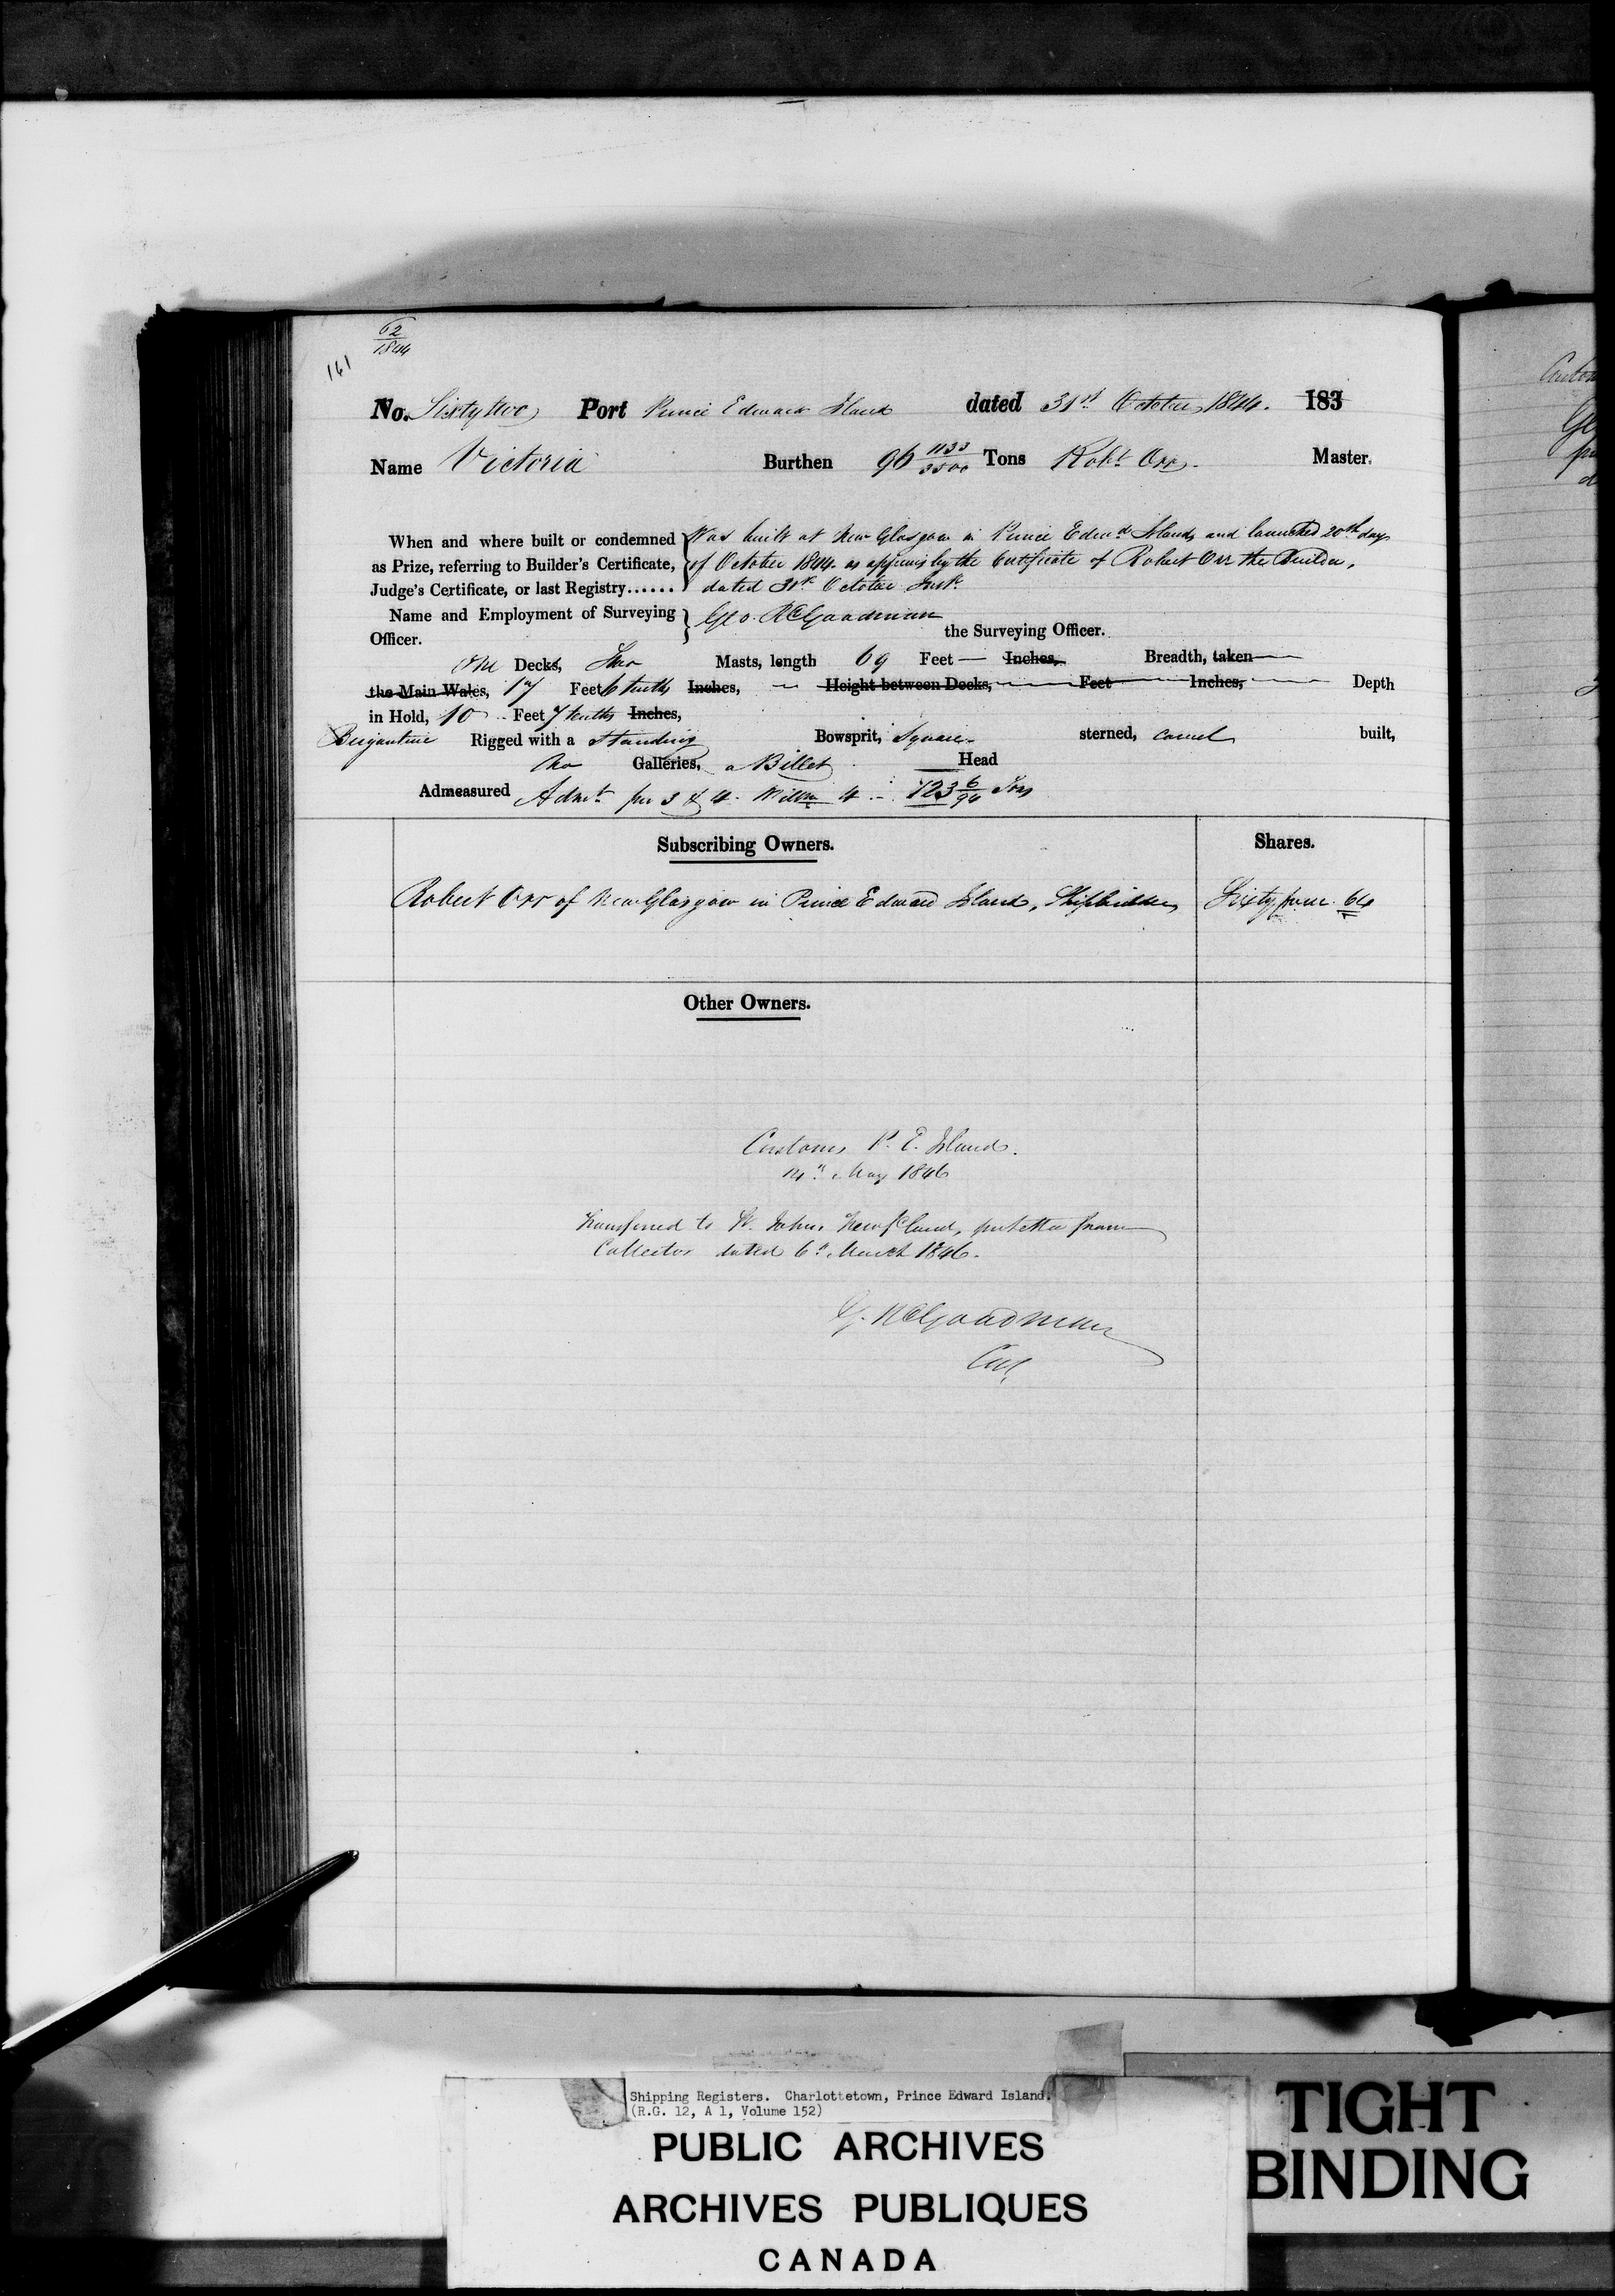 62
1844
161
No. Sixty two Port Prince Edward Island dated 31st October 1844. 183
Name Victoria Burthen 96 1133/3500 Tons Robt Orr. Master.
When and where built or condemned } Was built at New Glasgow in Prince Edwd Island, and launched 20th day
as Prize, referring to Builder's Certificate, of October 1844 as appears by the Certificate of Robert Orr the Builder,
Judge's Certificate, or last Registry...... dated 31st October Inst.
Name and Employment of Surveying } Geo. R Goodman
Officer. the Surveying Officer.
One Decks, Two Masts, length 69 Feet — Inches, Breadth, taken
the Main Wales, 17 Feet 6 tenths Inches, — Height between Decks, Feet Inches, Depth
in Hold, 10 Feet 7 tenths Inches,
Brigantine Rigged with a Standing Bowsprit, Square sterned, carvel built,
No Galleries, a Billet Head
Admeasured Admt per 3 & 4 Willm 4 - 123 6/94 Tons
Subscribing Owners. Shares.
Robert Orr of New Glasgow in Prince Edward Island, Shipbuilder, Sixty four 64
Other Owners.
Customs P. E. Island.
14th May 1846
Transferred to St. Johns Newfland, per letter from
Collector dated 6th March 1846.
G. R Goodman
Col
Shipping Registers. Charlottetown, Prince Edward Island.
(R.G. 12, A 1, Volume 152)
PUBLIC ARCHIVES
ARCHIVES PUBLIQUES
CANADA
TIGHT
BINDING